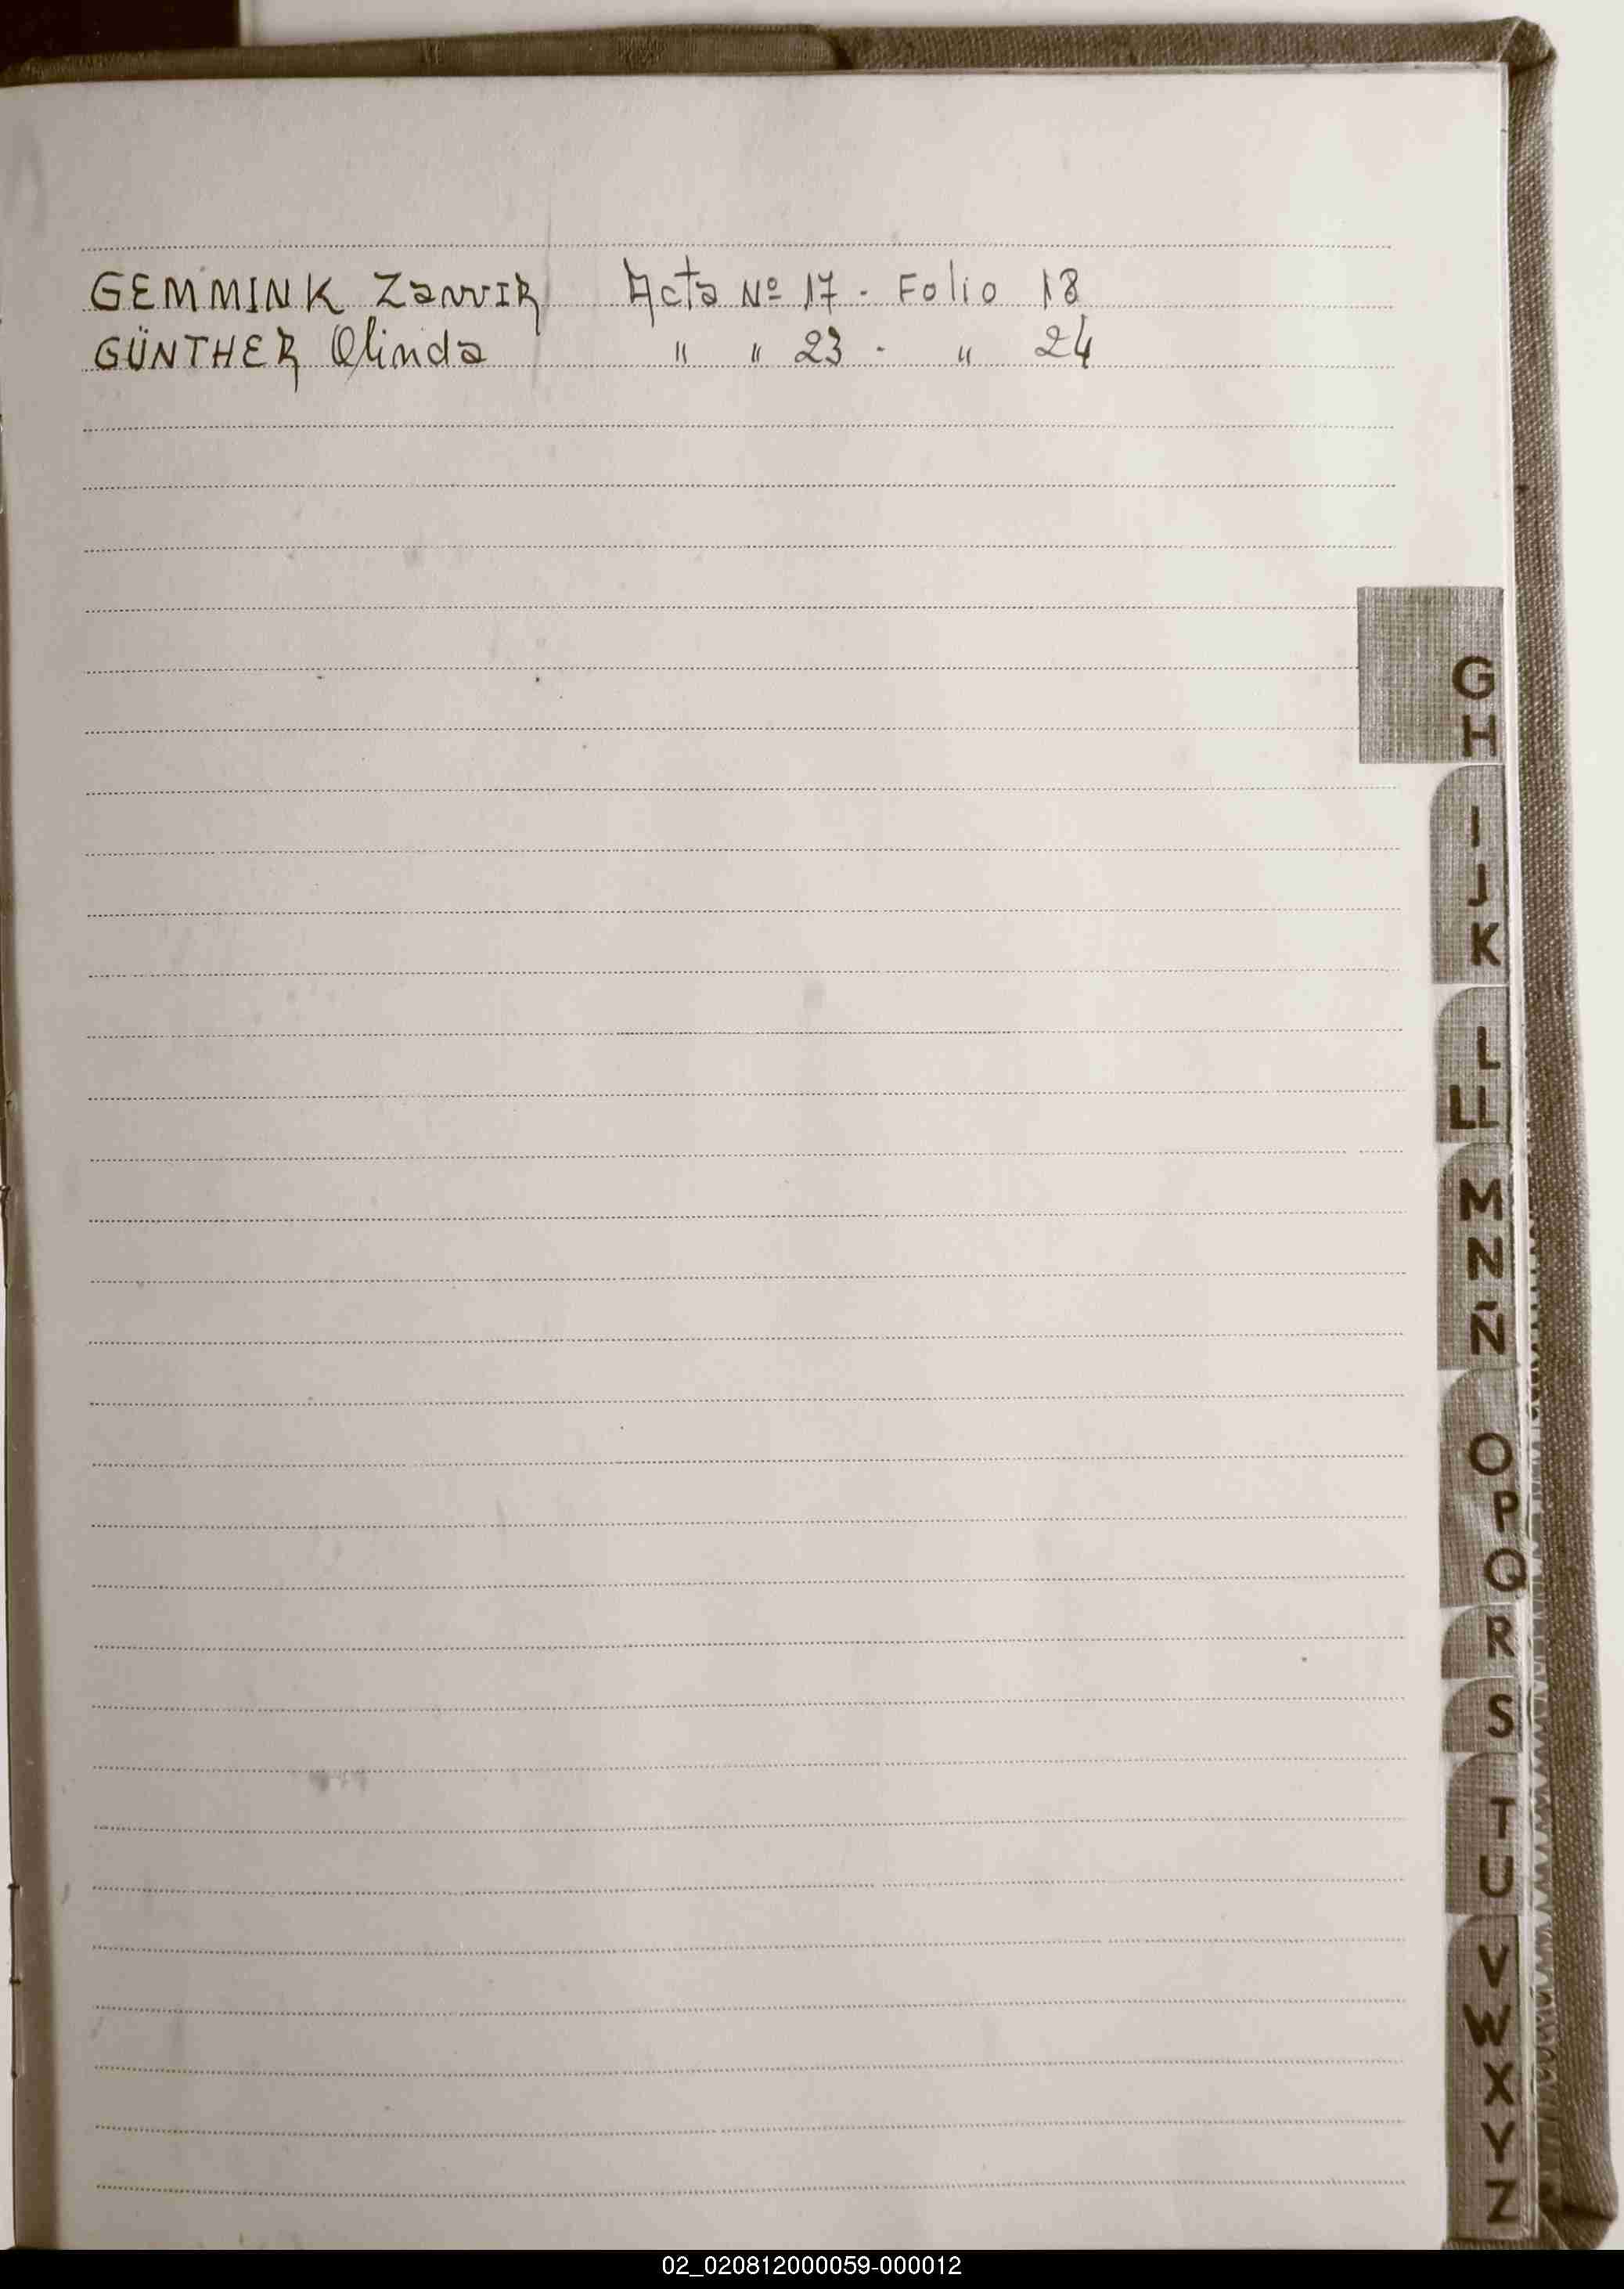 GEMMINK Acta Nº 17 - Folio 18
GÜNTHER Olinda " " 23 - " 24
G
H
I
J
K
L
LL
M
N
Ñ
O
P
Q
R
S
T
U
V
W
X
Y
Z
02_020812000059-000012